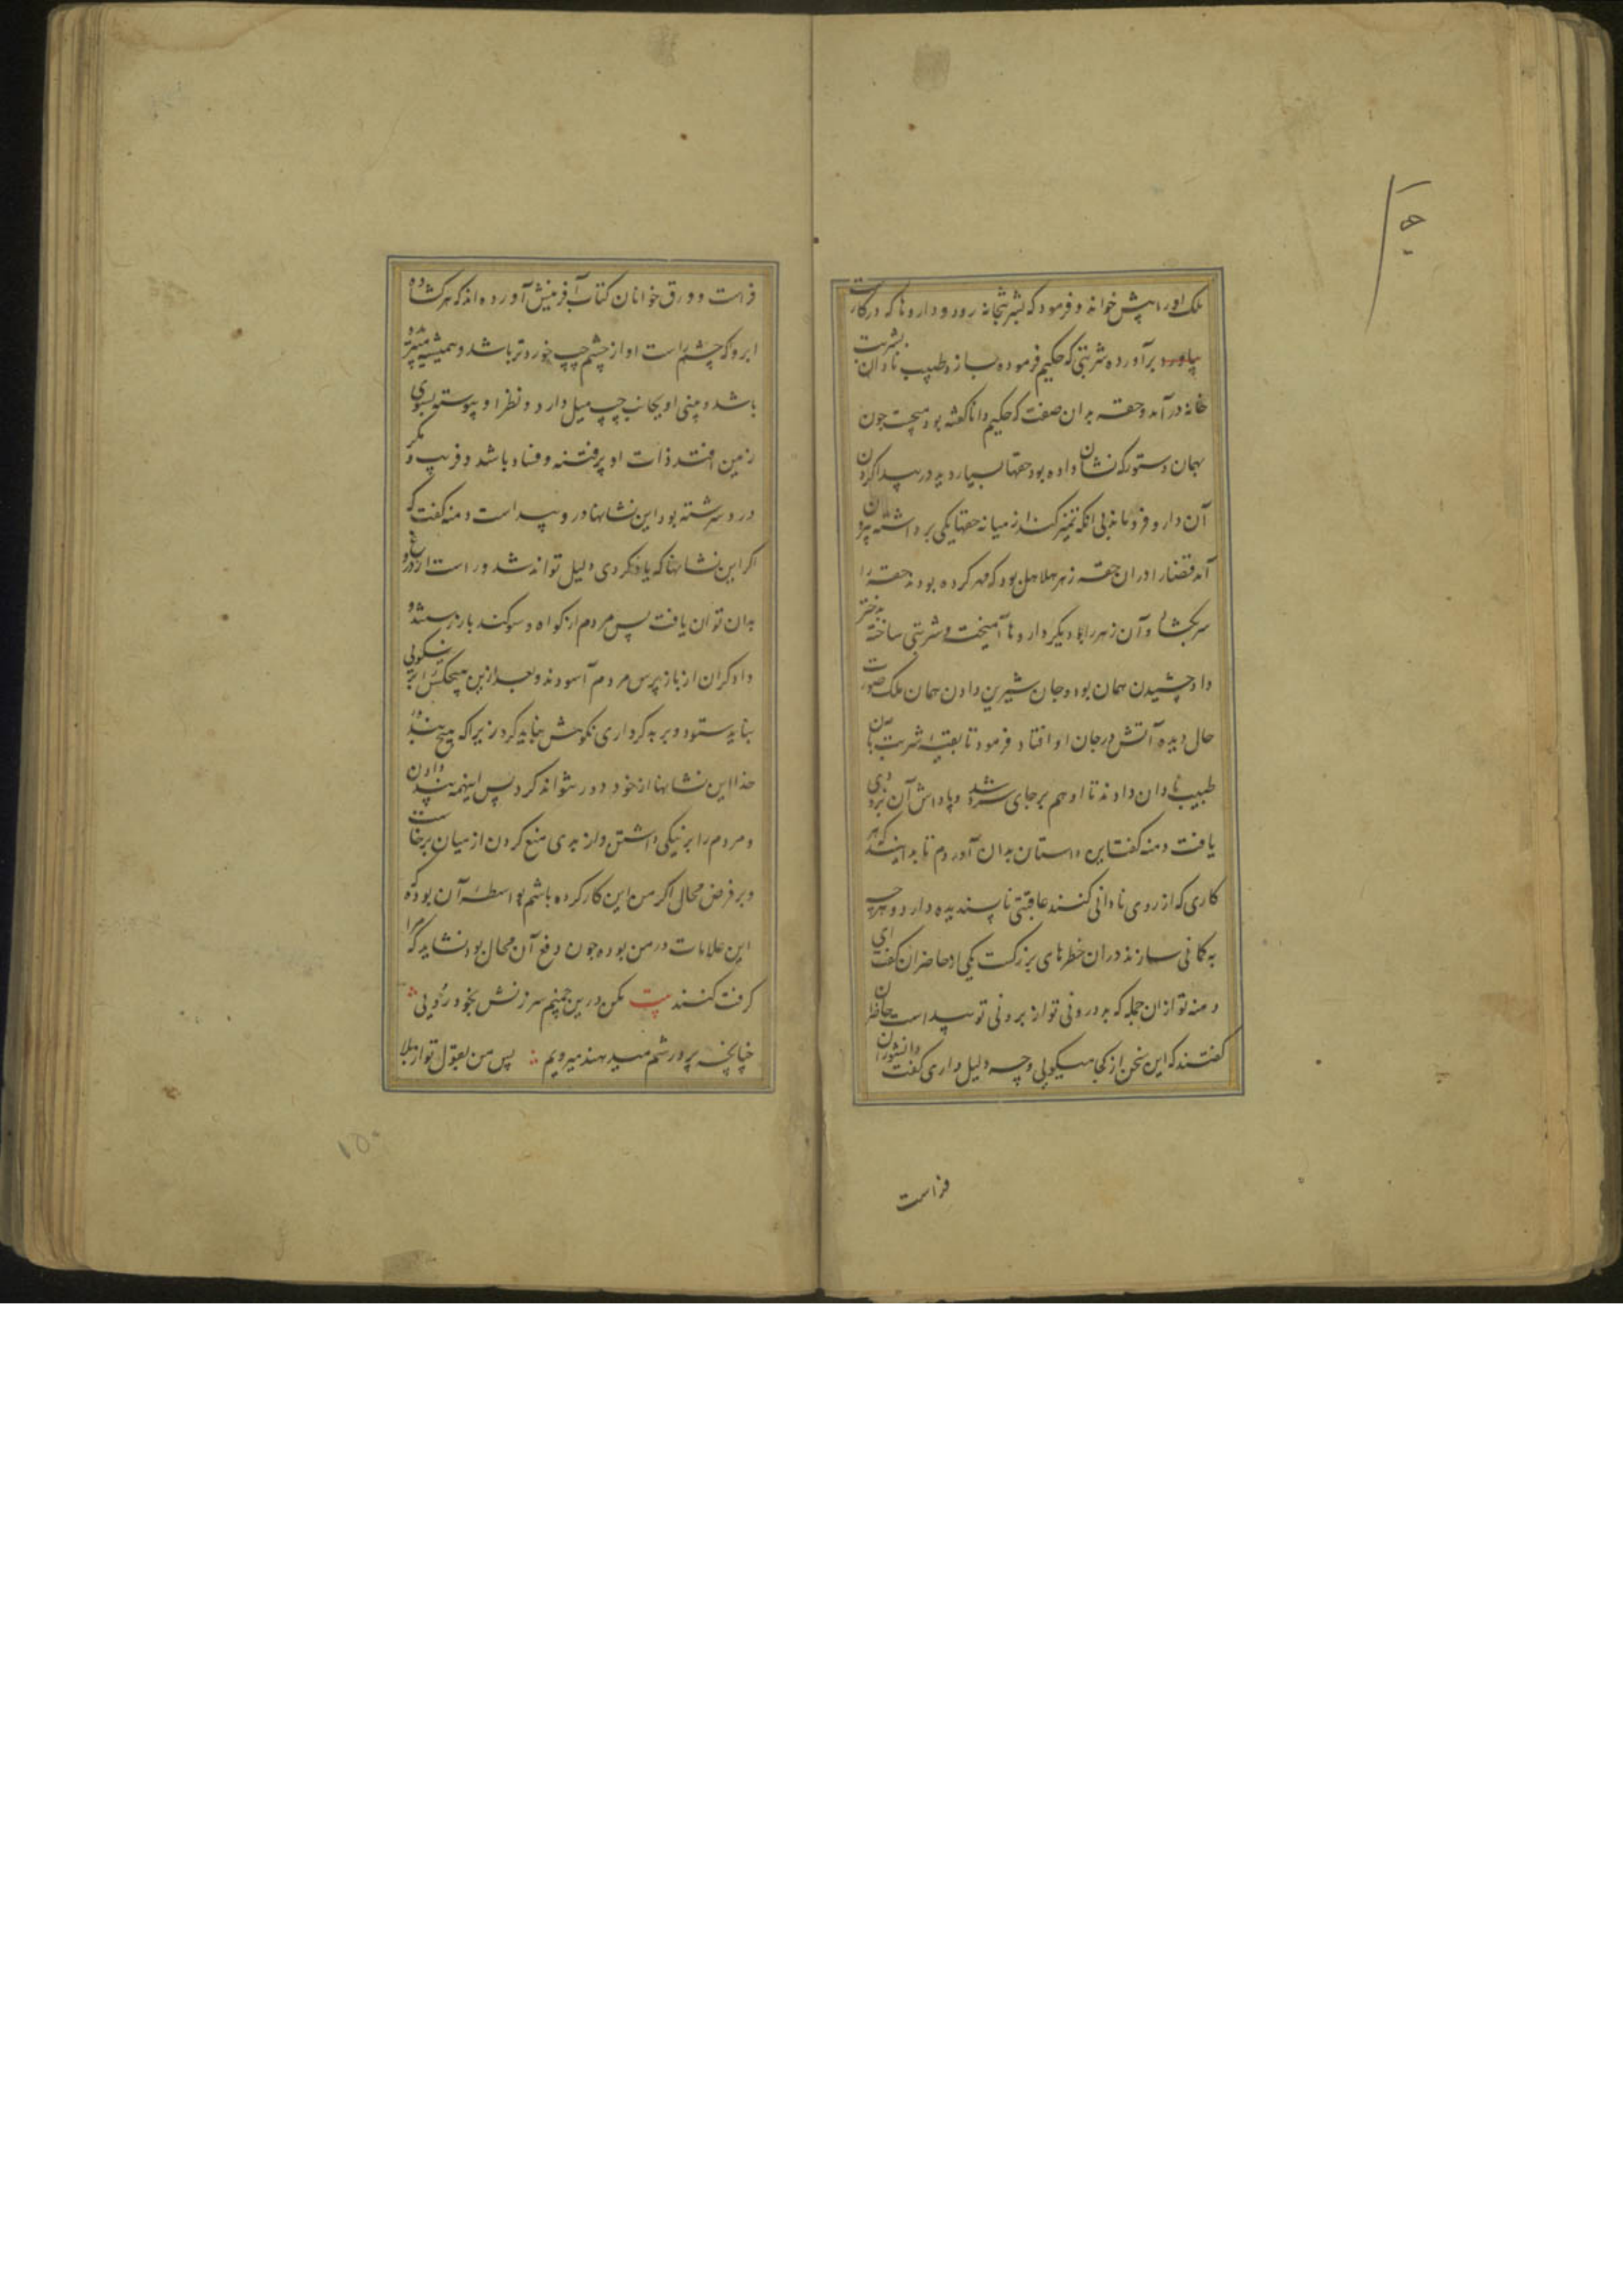 ملک او را پیش خواند و فرمود که بشربتخانه رود و داروها که در کارست
بیاورد برآورده شربتی که حکیم فرموده بسازد طبیب نادان بشربت
خانه درآمد و حقه بدان صفت که حکیم دانا گفته بود میجست چون
بهمان دستور که نشان داده بود حقها بسیار دید در پیدا کردن
آن دارو فروماند بی آنکه تمیز کند از میانه حقها یکی برداشته بیرون
آمد قضا را در ان حقه زهر هلاهل بود که مهر کرده بودند حقه را
سر بکشاد و آن زهر را با دیگر داروها آمیخت و شربتی ساخته بدختر
داد چشیدن همان بود و جان شیرین دادن همان ملک صورت
حال دیده آتش در جان او افتاد فرمود تا بقیه شربت بآن
طبیب نادان دادند تا او هم بر جای سرد شد و پاداش آن بزودی
یافت دمنه گفت این داستان بدان آوردم تا بدانند که هر
کاری که از روی نادانی کنند عاقبتی ناپسندیده دارد و هرچه
به گمانی سازند در ان خطرهای بزرگست یکی از حاضران گفت ای
دمنه تو از ان جمله که بد درونی تو از برونی تو پیداست حاضران
گفتند که این سخن از کجا میگویی و چه دلیل داری گفت دانشوران
فراست
فراست و ورق خوانان کتاب آفرینش آورده اند که هر کشاده
ابرو که چشم راست او از چشم چپ خوردتر باشد و همیشه
باشد و بینی او بجانب چپ میل دارد و نظر او پیوسته بسوی
زمین افتد ذات او پرفتنه و فساد باشد و فریب و مکر
درو سرشته بود این نشانها در و پیداست دمنه گفت که
اگر این نشانها که یاد کردی دلیل تواند شد و راست از دروغ
بدان توان یافت پس مردم از گواه و سوگند باز رستند و
دادگران از بازپرس مردم آسودند و بعد ازین هیچکس را بر نیکویی
نباید ستود و بر بدکرداری نکوهش نباید کرد زیرا که هیچ بنده
خدا این نشانها از خود دور نتواند کرد پس اینهمه پند دادن
و مردم را بر نیکی داشتن و از بدی منع کردن از میان برخاست
و بر فرض محال اگر من این کار کرده باشم بواسطه آن بوده که
این علامات در من بوده چون دفع آن محال بود نشاید که مرا
گرفت کنند بیت مکن درین چمنم سرزنش بخود رویی
چنانچه پرورشم میدهند میرویم پس من بقول تو از بلا
۱۵۰